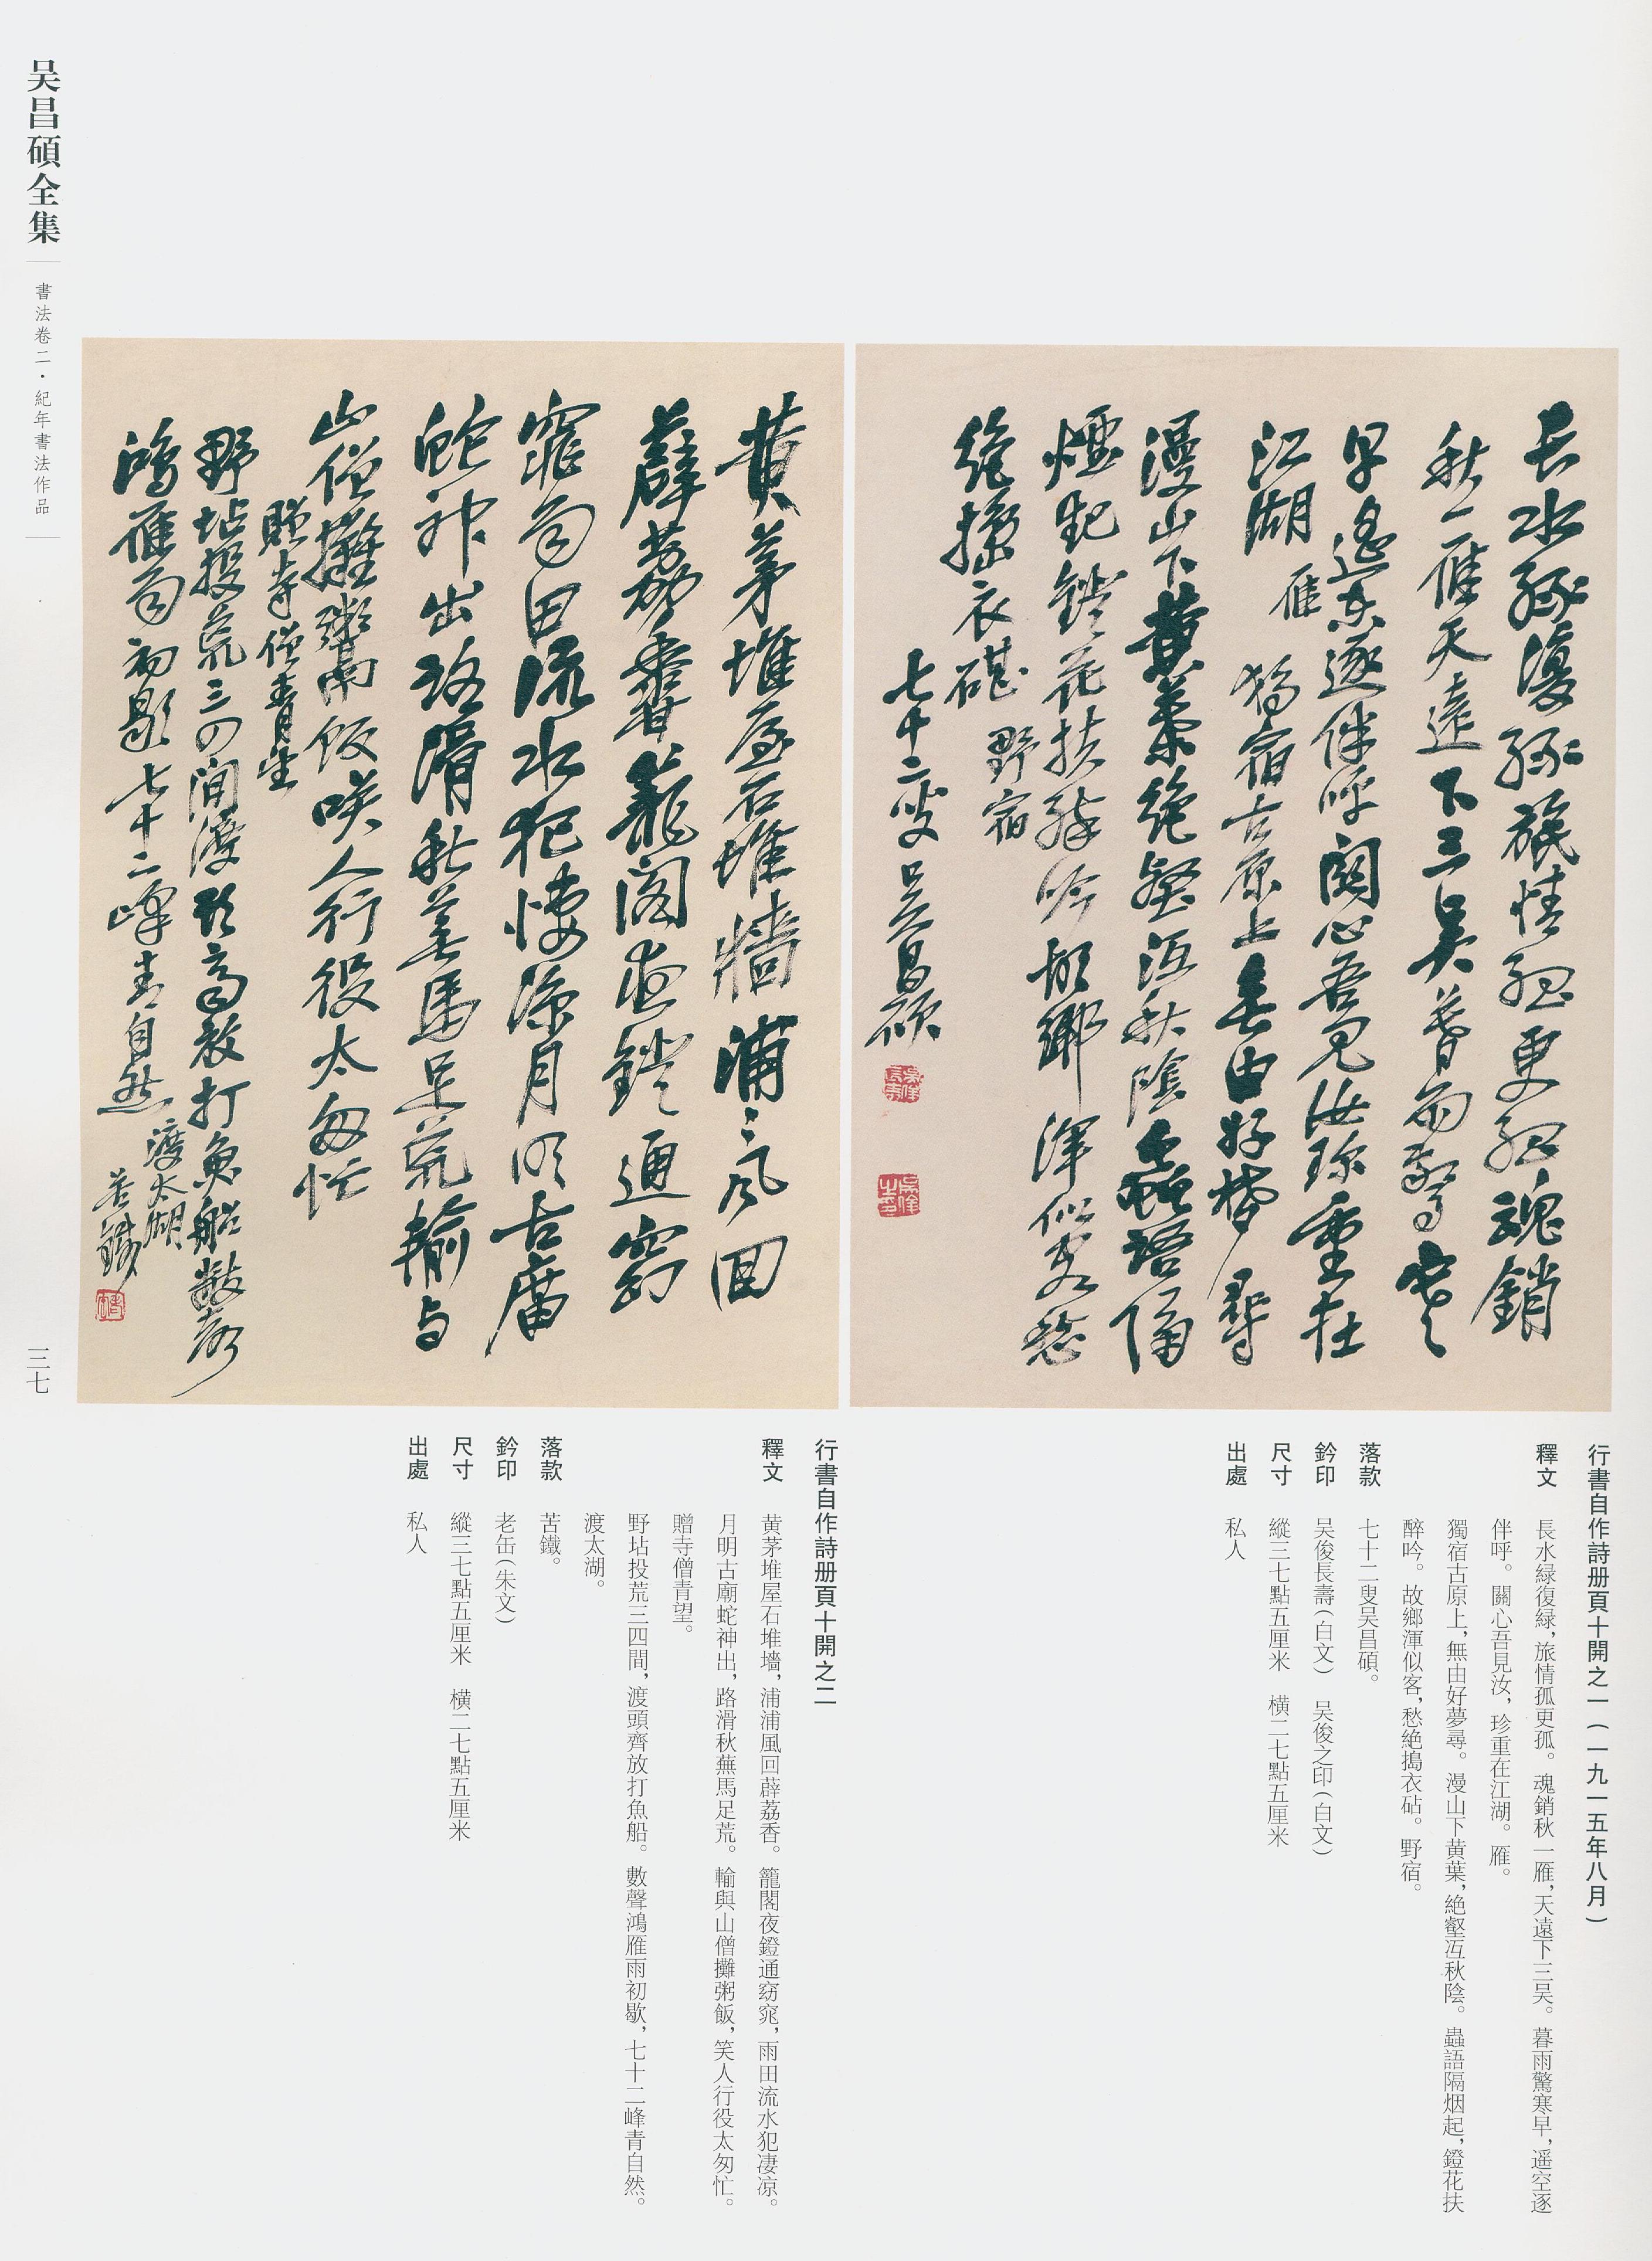 吴昌碩全集
書法卷二·紀年書法作品
三七
长水緑復緑旅情孤更孤魂銷
秋一雁天遠下三吴暮雨驚寒
早遥空逐伴呼關心吾見汝珍重在
江湖 雁 獨宿古原上無由好夢尋
漫山下黄葉絶壑沍秋陰蟲語隔
煙起鐙花扶醉吟故鄉渾似客愁
絶搗衣碪 野宿
七十二叟吴昌碩
吴俊長壽
吴俊之印
黄茅堆屋石堆墻浦浦風回
薜荔香籠閣夜鐙通窈
窕雨田流水犯悽涼月明古廟
蛇神出路滑秋蕪馬足荒輸与
山僧攤粥飯咲人行役太匆忙
贈寺僧青望
野坫投荒三四間渡頭齊放打魚船數聲
鴻雁雨初歇七十二峰青自然
渡太湖
苦鐵
老缶
行書自作詩册頁十開之一(一九一五年八月)
釋文 長水緑復緑,旅情孤更孤。魂銷秋一雁,天遠下三吴。暮雨驚寒早,遥空逐
伴呼。關心吾見汝,珍重在江湖。雁。
獨宿古原上,無由好夢尋。漫山下黄葉,絶壑沍秋陰。蟲語隔烟起,鐙花扶
醉吟。故鄉渾似客,愁絶搗衣砧。野宿。
落款 七十二叟吴昌碩。
鈐印 吴俊長壽(白文) 吴俊之印(白文)
尺寸 縱三七點五厘米 横二七點五厘米
出處 私人
行書自作詩册頁十開之二
釋文 黄茅堆屋石堆墻,浦浦風回薜荔香。籠閣夜鐙通窈窕,雨田流水犯凄凉。
月明古廟蛇神出,路滑秋蕪馬足荒。輸與山僧攤粥飯,笑人行役太匆忙。
贈寺僧青望。
野坫投荒三四間,渡頭齊放打魚船。數聲鴻雁雨初歇,七十二峰青自然。
渡太湖。
落款 苦鐵。
鈐印 老缶(朱文)
尺寸 縱三七點五厘米 横二七點五厘米
出處 私人